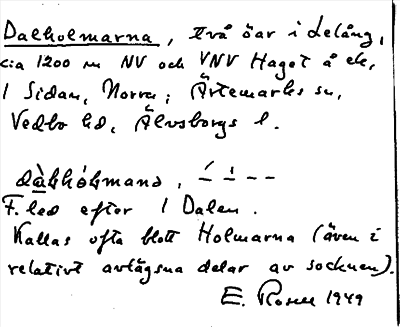 Dalholmarna, två öar i Lelång,
c:a 1200 m NV och VNV Haget å ek.
1 Sidan, Norra; Ärtemarks sn,
Vedbo hd, Älvsborgs l.
F. led efter 1 Dalen.
Kallas ofta blott Holmarna (även i
relativt avlägsna delar av socknen).
E. Rosell 1949